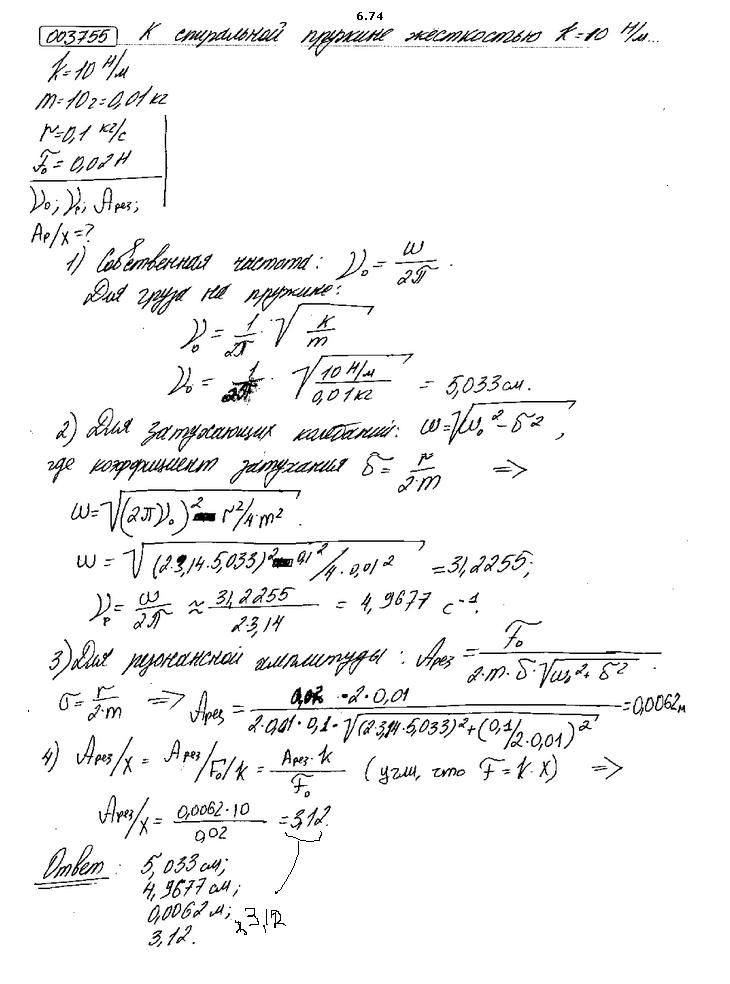 6.74
003755 К спиральной пружине жесткостью k=10 Н/м...
k=10 Н/м
m=10г=0,01кг
r=0,1 кг/с
F₀=0,02Н
ν₀; νр; Aрез;
Aр/x=?
1) Собственная частота: ν₀ = ω/2π.
Для груза на пружине:
ν₀ = 1/2π · √(k/m)
ν₀ = 1/2π · √(10 Н/м / 0,01кг) = 5,033 см.
2) Для затухающих колебаний: ω=√(ω₀² - δ²),
где коэффициент затухания δ = r/2·m =>
ω=√((2πν₀)² - r²/4·m²).
ω = √((2·3,14·5,033)² - 0,1²/4·0,01²) = 31,2255;
νр = ω/2π ≈ 31,2255/2·3,14 = 4,9677 с⁻¹.
3) Для резонансной амплитуды: Aрез = F₀/2·m·δ·√(ω₀² + δ²).
δ = r/2·m => Aрез = 0,02·2·0,01/2·0,01·0,1·√((2·3,14·5,033)²+(0,1/2·0,01)²) = 0,0062м
4) Aрез/x = Aрез/F₀/k = Aрез·k/F₀ (учли, что F=k·x) =>
Aрез/x = 0,0062·10/0,02 = 3,12.
Ответ: 5,033 см;
4,9677 см;
0,0062 м;
3,12.